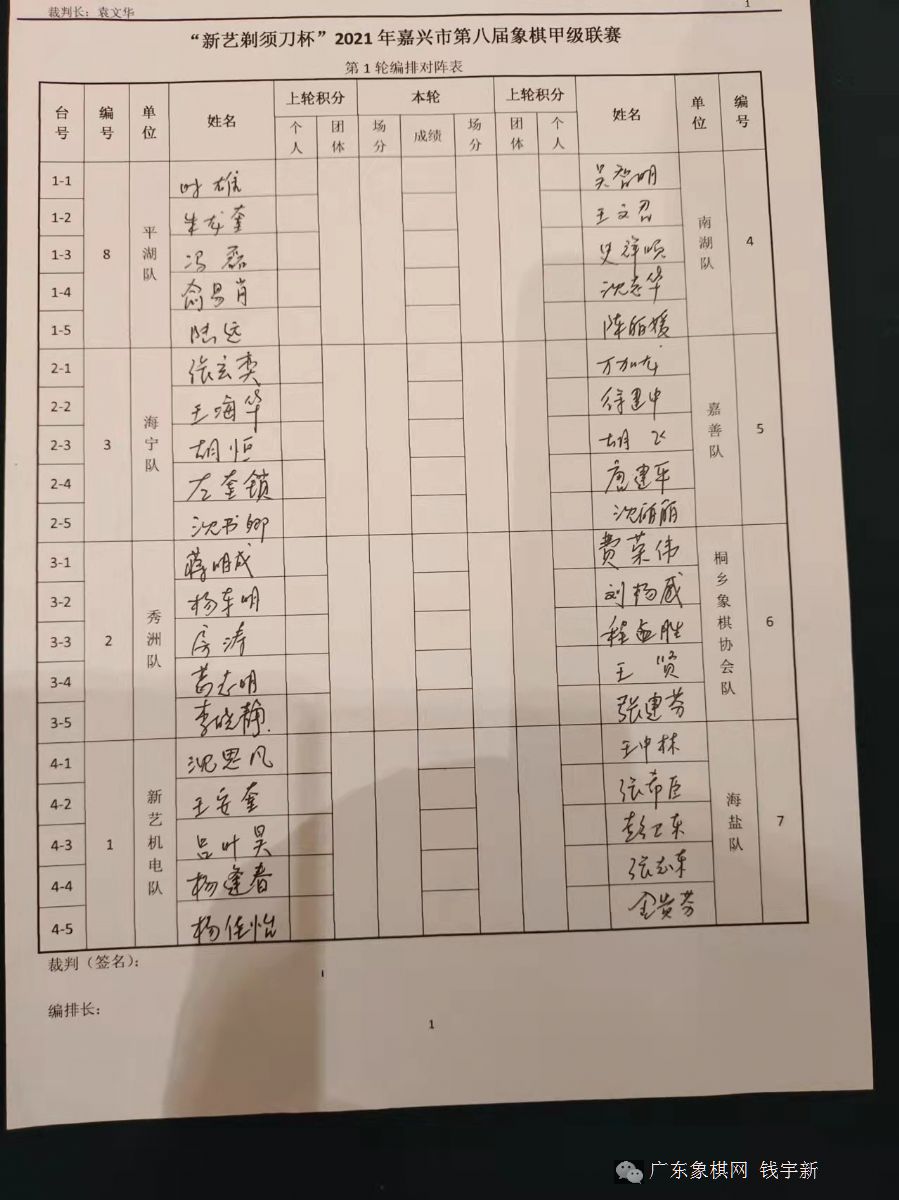 裁判长：袁文华
1
“新艺剃须刀杯”2021年嘉兴市第八届象棋甲级联赛
第1轮编排对阵表
台号 编号 单位 姓名 上轮积分 本轮 上轮积分 姓名 单位 编号
个人 团体 场分 成绩 场分 团体 个人
8 平湖队 南湖队 4
1-1 叶雄 吴智明
1-2 朱龙奎 王文君
1-3 冯磊 史祥顺
1-4 俞易肖 沈志华
1-5 陆远 陈丽媛
3 海宁队 嘉善队 5
2-1 张玄奕 万加龙
2-2 王海华 徐建中
2-3 胡恒 胡飞
2-4 左奎锁 唐建军
2-5 沈书卿 沈丽丽
2 秀洲队 桐乡象棋协会队 6
3-1 蒋明成 费荣伟
3-2 杨东明 刘杨威
3-3 房涛 程孟胜
3-4 葛志明 王贤
3-5 李晓静 张建芬
1 新艺机电队 海盐队 7
4-1 沈思凡 王中林
4-2 王安奎 张希臣
4-3 吕叶昊 彭卫东
4-4 杨逢春 张志东
4-5 杨佳怡 金美芬
裁判（签名）：
编排长：
1
广东象棋网 钱宇新